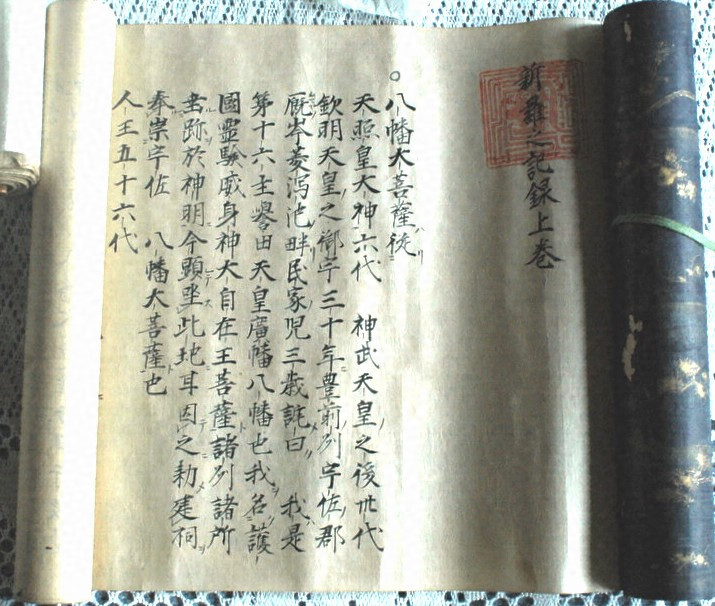 新羅之記録上巻
○八幡大菩薩従
天照皇大神六代　神武天皇之後卅代
欽明天皇之御宇三十年豊前列宇佐郡
厩岑菱瀉池畔民家児三歳託曰　我是
第十六主誉田天皇廣幡八幡也我名護
國霊験威身神大自在王菩薩諸列諸所
垂跡於神明今顕坐此地耳因之勅建祠
奉崇宇佐　八幡大菩薩也
人王五十六代